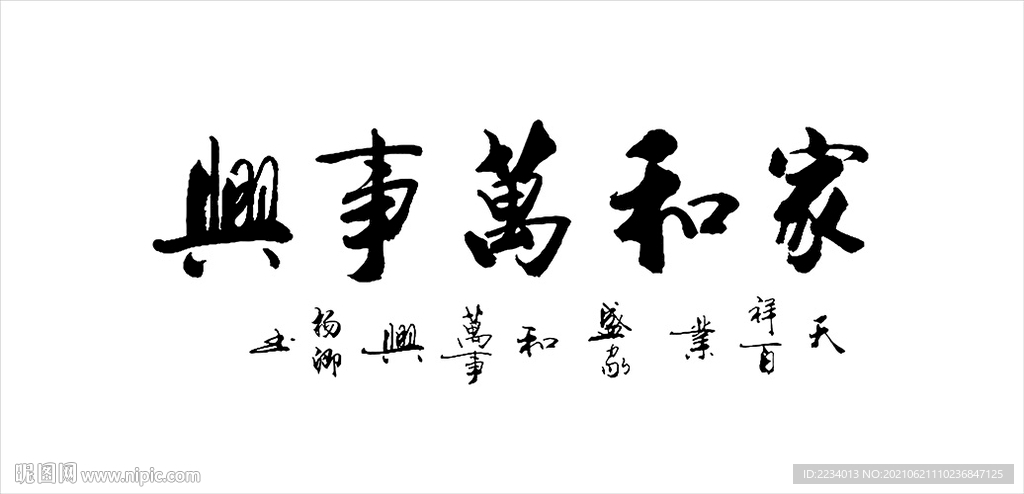 家和萬事興
天祥百業盛家和萬事興杨卿书
昵图网 www.nipic.com
ID:2234013 NO:20210621110236847125